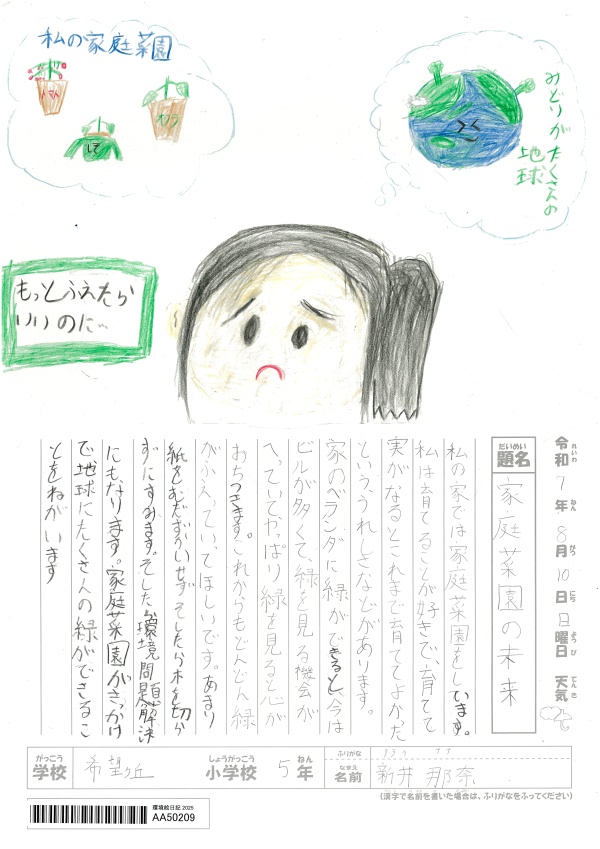 私の家庭菜園
トマト
しそ
オクラ
みどりがたくさんの
地球
もっとふえたら
いいのに…
令和7年8月10日日曜日 天気
れいわ ねん がつ にち ようび てんき
だいめい
題名 家庭菜園の未来
私の家では家庭菜園をしています。
私は育てることが好きで、育てて
実がなるとこれまで育ててよかった
という、うれしさなどがあります。
家のベランダに緑ができると、今は
ビルが多くて、緑を見る機会が
へっていてやっぱり緑を見ると心が
おちつきます。これからもどんどん緑
がふえていってほしいです。あまり
紙をむだづかいせず そしたら木を切ら
ずにすみます。そしたら環境問題解決
にもなります。家庭菜園がきっかけ
で地球にたくさんの緑ができるこ
とをねがいます
がっこう しょうがっこう ねん
学校 希望ヶ丘 小学校 5年
ふりがな
なまえ
名前 新井 那奈
(漢字で名前を書いた場合は、ふりがなをふってください)
環境絵日記 2025
AA50209